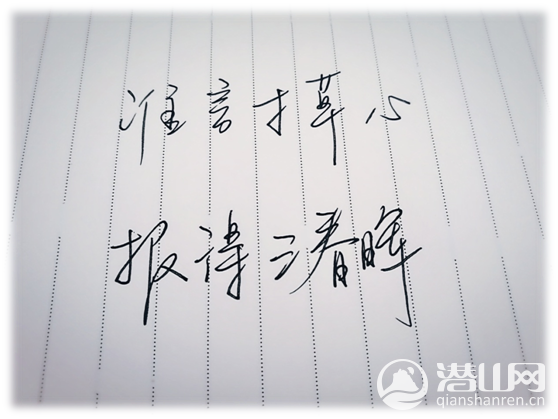 谁言寸草心
报得三春晖
潜山网
qianshanren.cn